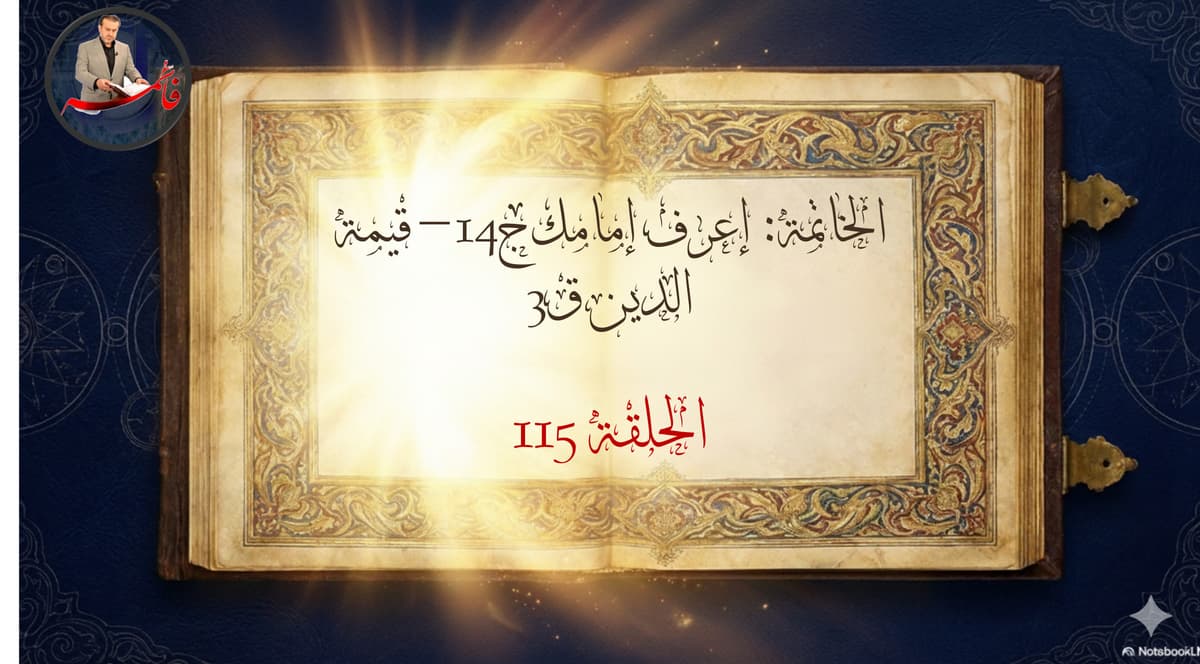 فاطمة
الخاتمة: إعرف إمامك ج14 – قيمة
الدين ق3
الحلقة 115
NotsbookLM